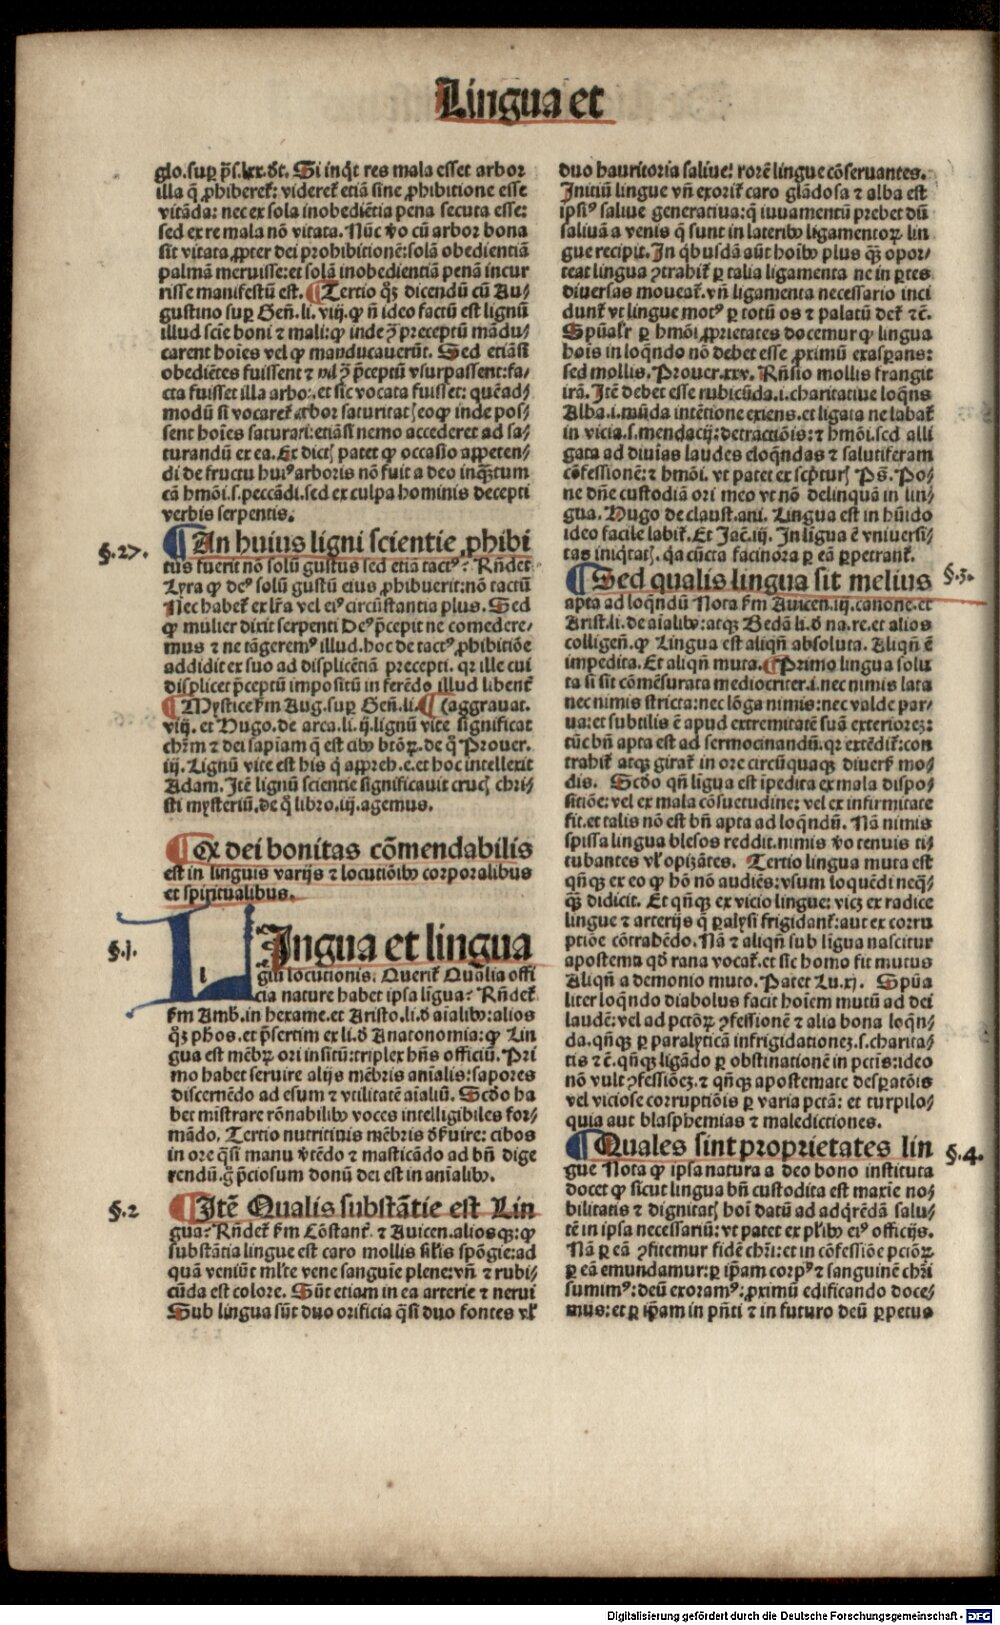 Lingua et
glo.suꝑ p̃s.lxx.dt. Si inq̃t res mala esset arbor
illa q̃ ꝓhiberet᷑: videret᷑ etiã sine ꝓhibitione esse
vitãda: nec ex sola inobediẽtia pena secuta esse:
sed ex re mala nõ vitata. Nũc ṽo cũ arbor bona
sit vitata ꝓpter dei prohibitionẽ: solã obedientiã
palmã meruisse: et solã inobedientiã penã incur
risse manifestũ est. ¶ Tertio qꝫ dicendũ cũ Au⸗
gustino suꝑ Geñ. li. viij. ꝙ ñ ideo factũ est lignũ
illud sciẽ boni ⁊ mali: ꝙ inde ꝯ̃ preceptũ mãdu⸗
carent hoĩes vel ꝙ manducauerũt. Sed etiãsi
obediẽtes fuissent ⁊ nil ꝯ̃ p̃ceptũ vsurpassent: fa⸗
cta fuisset illa arbor. et sic vocata fuisset: quẽad⸗
modũ si vocaret᷑ arbor saturitatꝭ eoꝙ inde pos⸗
sent hoĩes saturari: etiãsi nemo accederet ad sa⸗
turandũ ex ea. Et dictꝭ patet ꝙ occasio appeten⸗
di de fructu huiꝰ arboris nõ fuit a deo inqꝫ̃tum
cã hmõi.s.peccãdi. sed ex culpa hominis decepti
verbis serpentis.
§.27. ¶ An huius ligni scientie ꝓhibi
tus fuerit nõ solũ gustus sed etiã tactꝰ? Rñdet
Lyra ꝙ deꝰ solũ gustũ eius ꝓhibuerit: nõ tactũ
Nec habet᷑ ex lr̃a vel eiꝰ circũstantia plus. Sed
ꝙ mulier dixit serpenti Deꝰ p̃cepit ne comedere⸗
mus ⁊ ne tãgeremꝰ illud. hoc de tactꝰ ꝓhibitiõe
addidit ex suo ad displicẽtiã precepti. qr ille cui
displicet p̃ceptũ impositũ in ferẽdo illud libent᷑
¶ Mystice ẜm Aug. suꝑ Geñ. li. ¶ (aggrauat.
viij. et Hugo. de arca. li. ij. lignũ vite significat
chr̃m ⁊ dei sapiam q̃ est cibꝰ btõꝝ. de q̃ Prouer.
iij. Lignũ vite est his q̃ appreh.e. et hoc intellexit
Adam. Itẽ lignũ scientie significauit crucẽ chri⸗
sti mysteriũ. de q̃ libro. iij. agemus.
¶ Ex dei bonitas cõmendabilis
est in linguis varijs ⁊ locutiõibꝰ corporalibus
et spiritualibus.
§.j. Lingua et lingua
l
giũ locutionis. Querit᷑ Qualia offi
cia nature habet ipsa lĩgua? Rñdet᷑
ẜm Amb. in hexame. et Aristo. li. đ aialibꝰ: alios
qꝫ pħos. et p̃sertim ex li. đ Anatonomia: ꝙ Lin
gua est mẽbꝝ ori insitũ: triplex hñs officiũ. Pri
mo habet seruire alijs mẽbris anĩalis: sapores
discernẽdo ad esum ⁊ vtilitatẽ aĩaliũ. Scđo ha
bet mĩstrare rõnabilibꝰ voces intelligibiles for⸗
mãdo. Tertio nutritiuis mẽbris đẜuire: cibos
in ore q̃si manu v̾tẽdo ⁊ masticãdo ad bñ dige
rendũ. g̃ p̃ciosum donũ dei est in anĩalibꝰ.
§.2 ¶ Itẽ Qualis substãtie est Lin
gua? Rñdet᷑ ẜm Cõstant᷑. ⁊ Auicen. aliosqꝫ: ꝙ
substãtia lingue est caro mollis sil̃is spõgie: ad
quã veniũt ml̃te vene sanguĩe plene: vñ ⁊ rubi⸗
cũda est colore. Sũt etiam in ea arterie ⁊ nerui
Sub lingua sũt duo orificia q̃si duo fontes vl̃
duo hauritoria saliue: rorẽ lingue cõseruantes.
Initiũ lingue vñ exorit᷑ caro glãdosa ⁊ alba est
ipsiꝰ saliue generatiua: q̃ iuuamentũ prebet dũ
saliuã a venis q̃ sunt in lateribꝰ ligamentoꝝ lin
gue recipit. In q̃busdã aũt hoĩbꝰ plus qꝫ̃ opor⸗
teat lingua ꝯtrahit᷑ ꝑ talia ligamenta ne in ꝑtes
diuersas moueat᷑. vñ ligamenta necessario inci
dunt᷑ vt lingue motꝰ ꝑ totũ os ⁊ palatũ det᷑ ⁊c̃.
Spũalr̃ ꝑ hmõi ꝓprietates docemur ꝙ lingua
hoĩs in loq̃ndo nõ debet esse ꝓximũ exasperans:
sed mollis. Prouer. xxv. Rñsio mollis frangit
irã. Itẽ debet esse rubicũda.i.charitatiue loq̃ns
Alba.i.mũda intẽtione exiens. et ligata ne labat᷑
in vicia.s.mendacij: detractiõis: ⁊ hmõi. sed alli
gata ad diuinas laudes eloq̃ndas ⁊ salutiferam
cõfessionẽ: ⁊ hmõi. vt patet ex scp̃turꝭ Ps̃. Po⸗
ne dñe custodiã ori meo vt nõ delinquã in lin⸗
gua. Hugo de claust. ani. Lingua est in hũido
ideo facile labit᷑. Et Jac̃. iij. In lĩgua ẽ vniuersi⸗
tas iniq̃tatꝭ. q̃a cũcta facinora ꝑ eã ꝑpetrant᷑.
¶ Sed qualis lingua sit melius §.3.
apta ad loq̃ndũ Nota ẜm Auicen. iij. canone. et
Arist. li. de aĩalibꝰ: atqꝫ Bedã li. đ na.re. et alios
colligeñ. ꝙ Lingua est aliqñ absoluta. Aliqñ ẽ
impedita. Et aliqñ muta. ¶ Primo lingua solu
ta si sit cõmẽsurata mediocriter.i.nec nimis lata
nec nimis stricta: nec lõga nimis: nec valde par⸗
ua: et subtilis ẽ apud extremitatẽ suã exteriorẽ:
tũc bñ apta est ad sermocinandũ. qr extẽdit᷑: con
trahit᷑ atqꝫ girat᷑ in ore circũquaqꝫ diuerſ mo⸗
dis. Scđo qñ lĩgua est ĩpedita ex mala dispo⸗
sitiõe: vel ex mala cõsuetudine: vel ex infirmitate
fit. et talis nõ est bñ apta ad loq̃ndũ. Nã nimis
spissa lingua blesos reddit. nimis ṽo tenuis ti⸗
tubantes vl̃ opizãtes. Tertio lingua muta est
qñqꝫ ex eo ꝙ hõ nõ audiẽs: vsum loquẽdi neq̃⸗
qꝫ̃ didicit. Et qñqꝫ ex vicio lingue: vicꝫ ex radice
lingue ⁊ arterijs q̃ ꝑalysi frigidant᷑: aut ex corru
ptiõe cõtrahẽdo. Nã ⁊ aliqñ sub lĩgua nascitur
apostema qđ rana vocat᷑. et sic homo fit mutus
Aliqñ a demonio muto. Patet Lu. xj. Spũa
liter loq̃ndo diabolus facit hoĩem mutũ ad dei
laudẽ: vel ad pctõꝝ ꝯfessionẽ ⁊ alia bona loq̃n⸗
da. qñqꝫ ꝑ paralyticã infrigidationeꝫ.s.charita⸗
tis ⁊c̃. qñqꝫ ligãdo ꝑ obstinationẽ in pctĩs: ideo
nõ vult ꝯfessiõeꝫ. ⁊ qñqꝫ apostemate desꝑatõis
vel viciose corruptiõis ꝑ varia pctã: et turpilo⸗
quia aut blasphemias ⁊ maledictiones.
¶ Quales sint proprietates lin §.4.
gue Nota ꝙ ipsa natura a deo bono instituta
docet ꝙ sicut lingua bñ custodita est maxĩe no⸗
bilitatis ⁊ dignitatꝭ hoĩ datũ ad adq̃rẽdã salu⸗
tẽ in ipsa necessariũ: vt patet ex pl̃ibꝰ eiꝰ officijs.
Nã ꝑ eã ꝯfitemur fidẽ chr̃i: et in cõfessiõe pctõꝝ
ꝑ eã emundamur: ꝑ ip̃am corpꝰ ⁊ sanguinẽ chr̃i
sumimꝰ: deũ exoramꝰ: ꝓximũ edificando doce⸗
mus: et ꝑ ip̃am in pñti ⁊ in futuro deũ ꝑpetuo
Digitalisierung gefördert durch die Deutsche Forschungsgemeinschaft - DFG